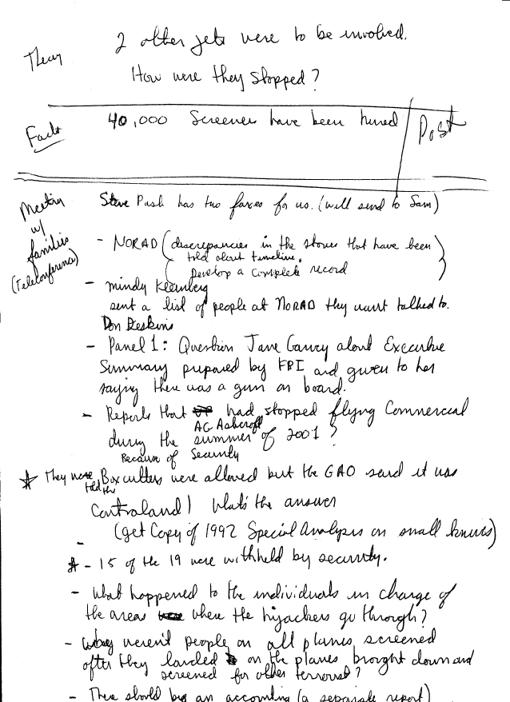 Theory 2 other jets were to be involved.
How were they stopped?
Facts 40,000 Screeners have been hired Post
Meeting
w/
families
(Teleconference)
Steve Push has two faxes for us. (will send to Sam)
- NORAD (discrepancies in the stories that have been
told about timeline.
Develop a complete record)
- mindy Kleinberg
sent a list of people at NORAD they want talked to.
Don
- Panel 1: Question Jane Garvey about Executive
Summary prepared by FBI and given to her
saying there was a gun on board.
- Reports that had stopped flying Commercial
AG Ashcroft
during the summer of 2001?
Because of Security
* They were Boxcutters were allowed but the GAO said it was
told the
Contraband! What's the answer
(get Copy of 1992 Special Analysis on small knives)
-
* - 15 of the 19 were withheld by security.
- What happened to the individuals in charge of
the areas where the hijackers go through?
- Why weren't people on all planes screened
after they landed on the planes brought down and
screened for other terrorist?
- There should be an accounting (a separate report)